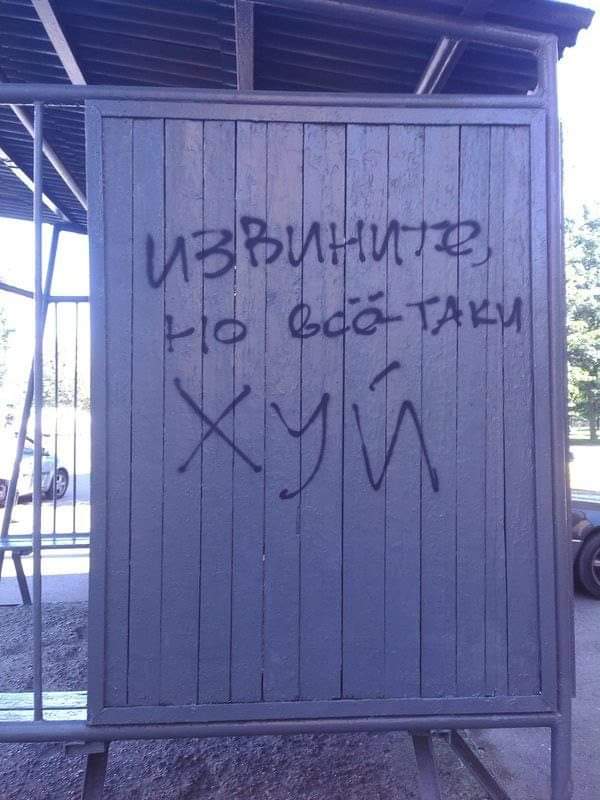 ИЗВИНИТЕ,
но всё-таки
ХУЙ